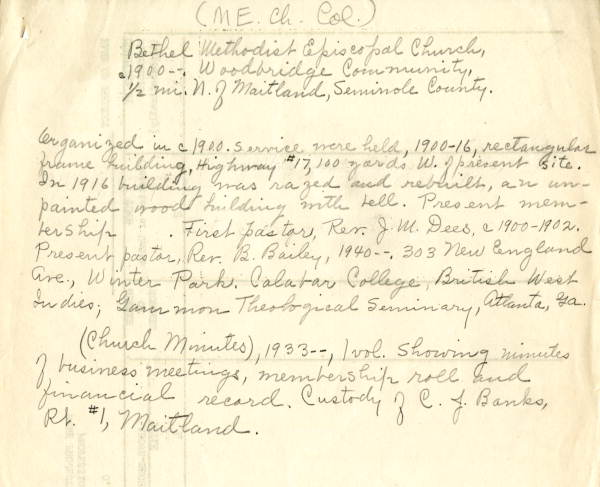 (M.E. Ch. Col.)
Bethel Methodist Episcopal Church,
c1900--. Woodbridge Community,
1/2 mi. N. of Maitland, Seminole County.
Organized in c1900. Service were held, 1900-16, rectangular
frame building, Highway #17, 100 yards W. of present site.
In 1916 building was razed and rebuilt, an un-
painted wood building with bell. Present mem-
bership     . First pastor, Rev. J. W. Dees, c1900-1902.
Present pastor, Rev. B. Bailey, 1940--. 303 New England
Ave., Winter Park. Calabar College, British West
Indies; Gammon Theological Seminary, Atlanta, Ga.
(Church Minutes), 1933--, 1 vol. Showing minutes
of business meetings, membership roll and
financial record. Custody of C. J. Banks,
Rt. #1, Maitland.